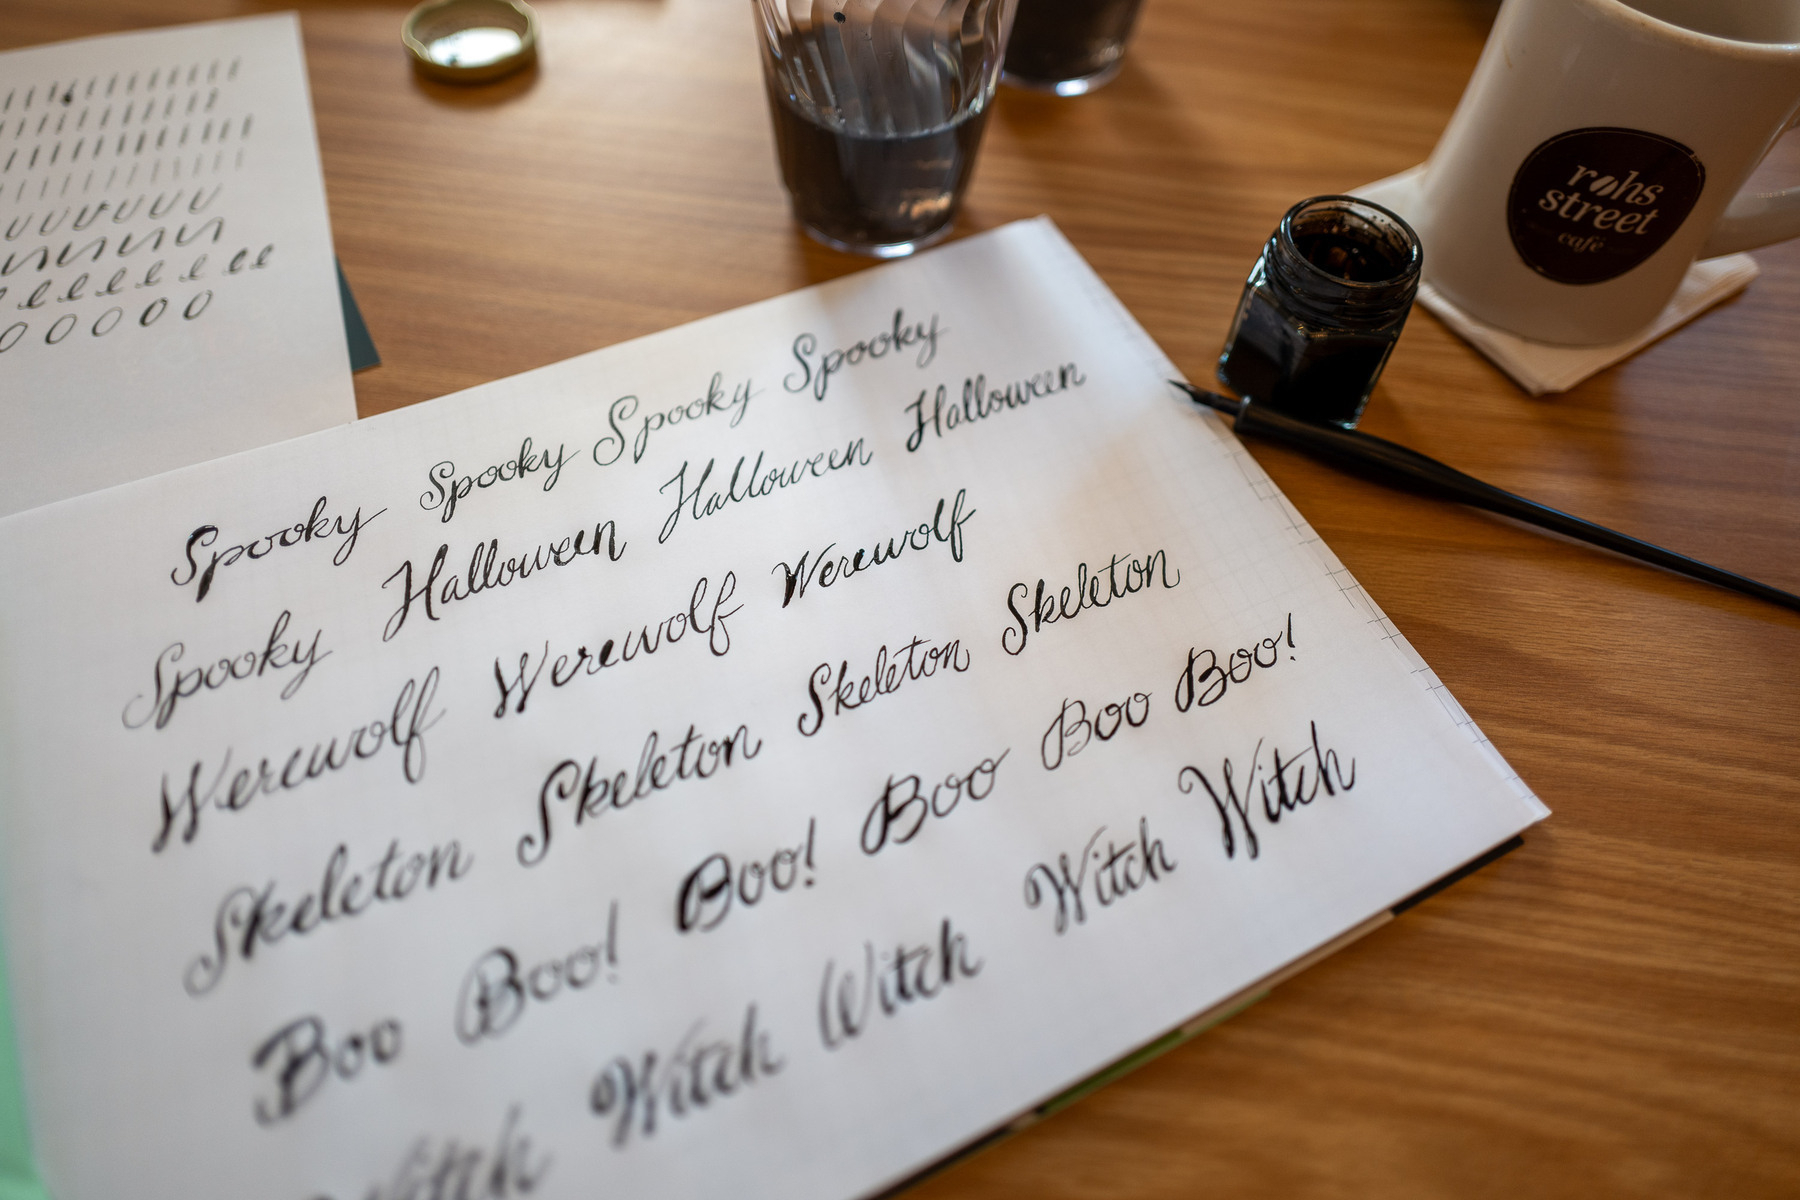 Spooky Spooky Spooky Spooky
Spooky Halloween Halloween Halloween
Werewolf Werewolf Werewolf
Skeleton Skeleton Skeleton Skeleton
Boo Boo! Boo! Boo Boo Boo!
Witch Witch Witch Witch Witch
rohs
street
café